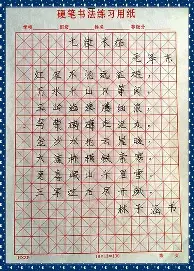 硬笔书法练习用纸
七律长征
毛泽东
红军不怕远征难，
万水千山只等闲
五岭逶迤腾细浪，
乌蒙磅礴走泥丸
金沙水拍云崖暖，
大渡桥横铁索寒
更喜岷山千里雪，
三军过后尽开颜